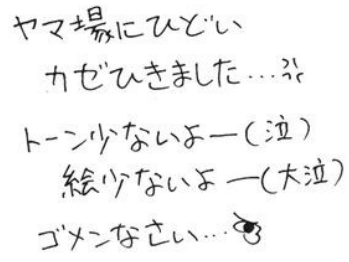 ヤマ場にひどい
カゼひきました…
トーン少ないよー(泣)
絵少ないよー(大泣)
ゴメンなさい…